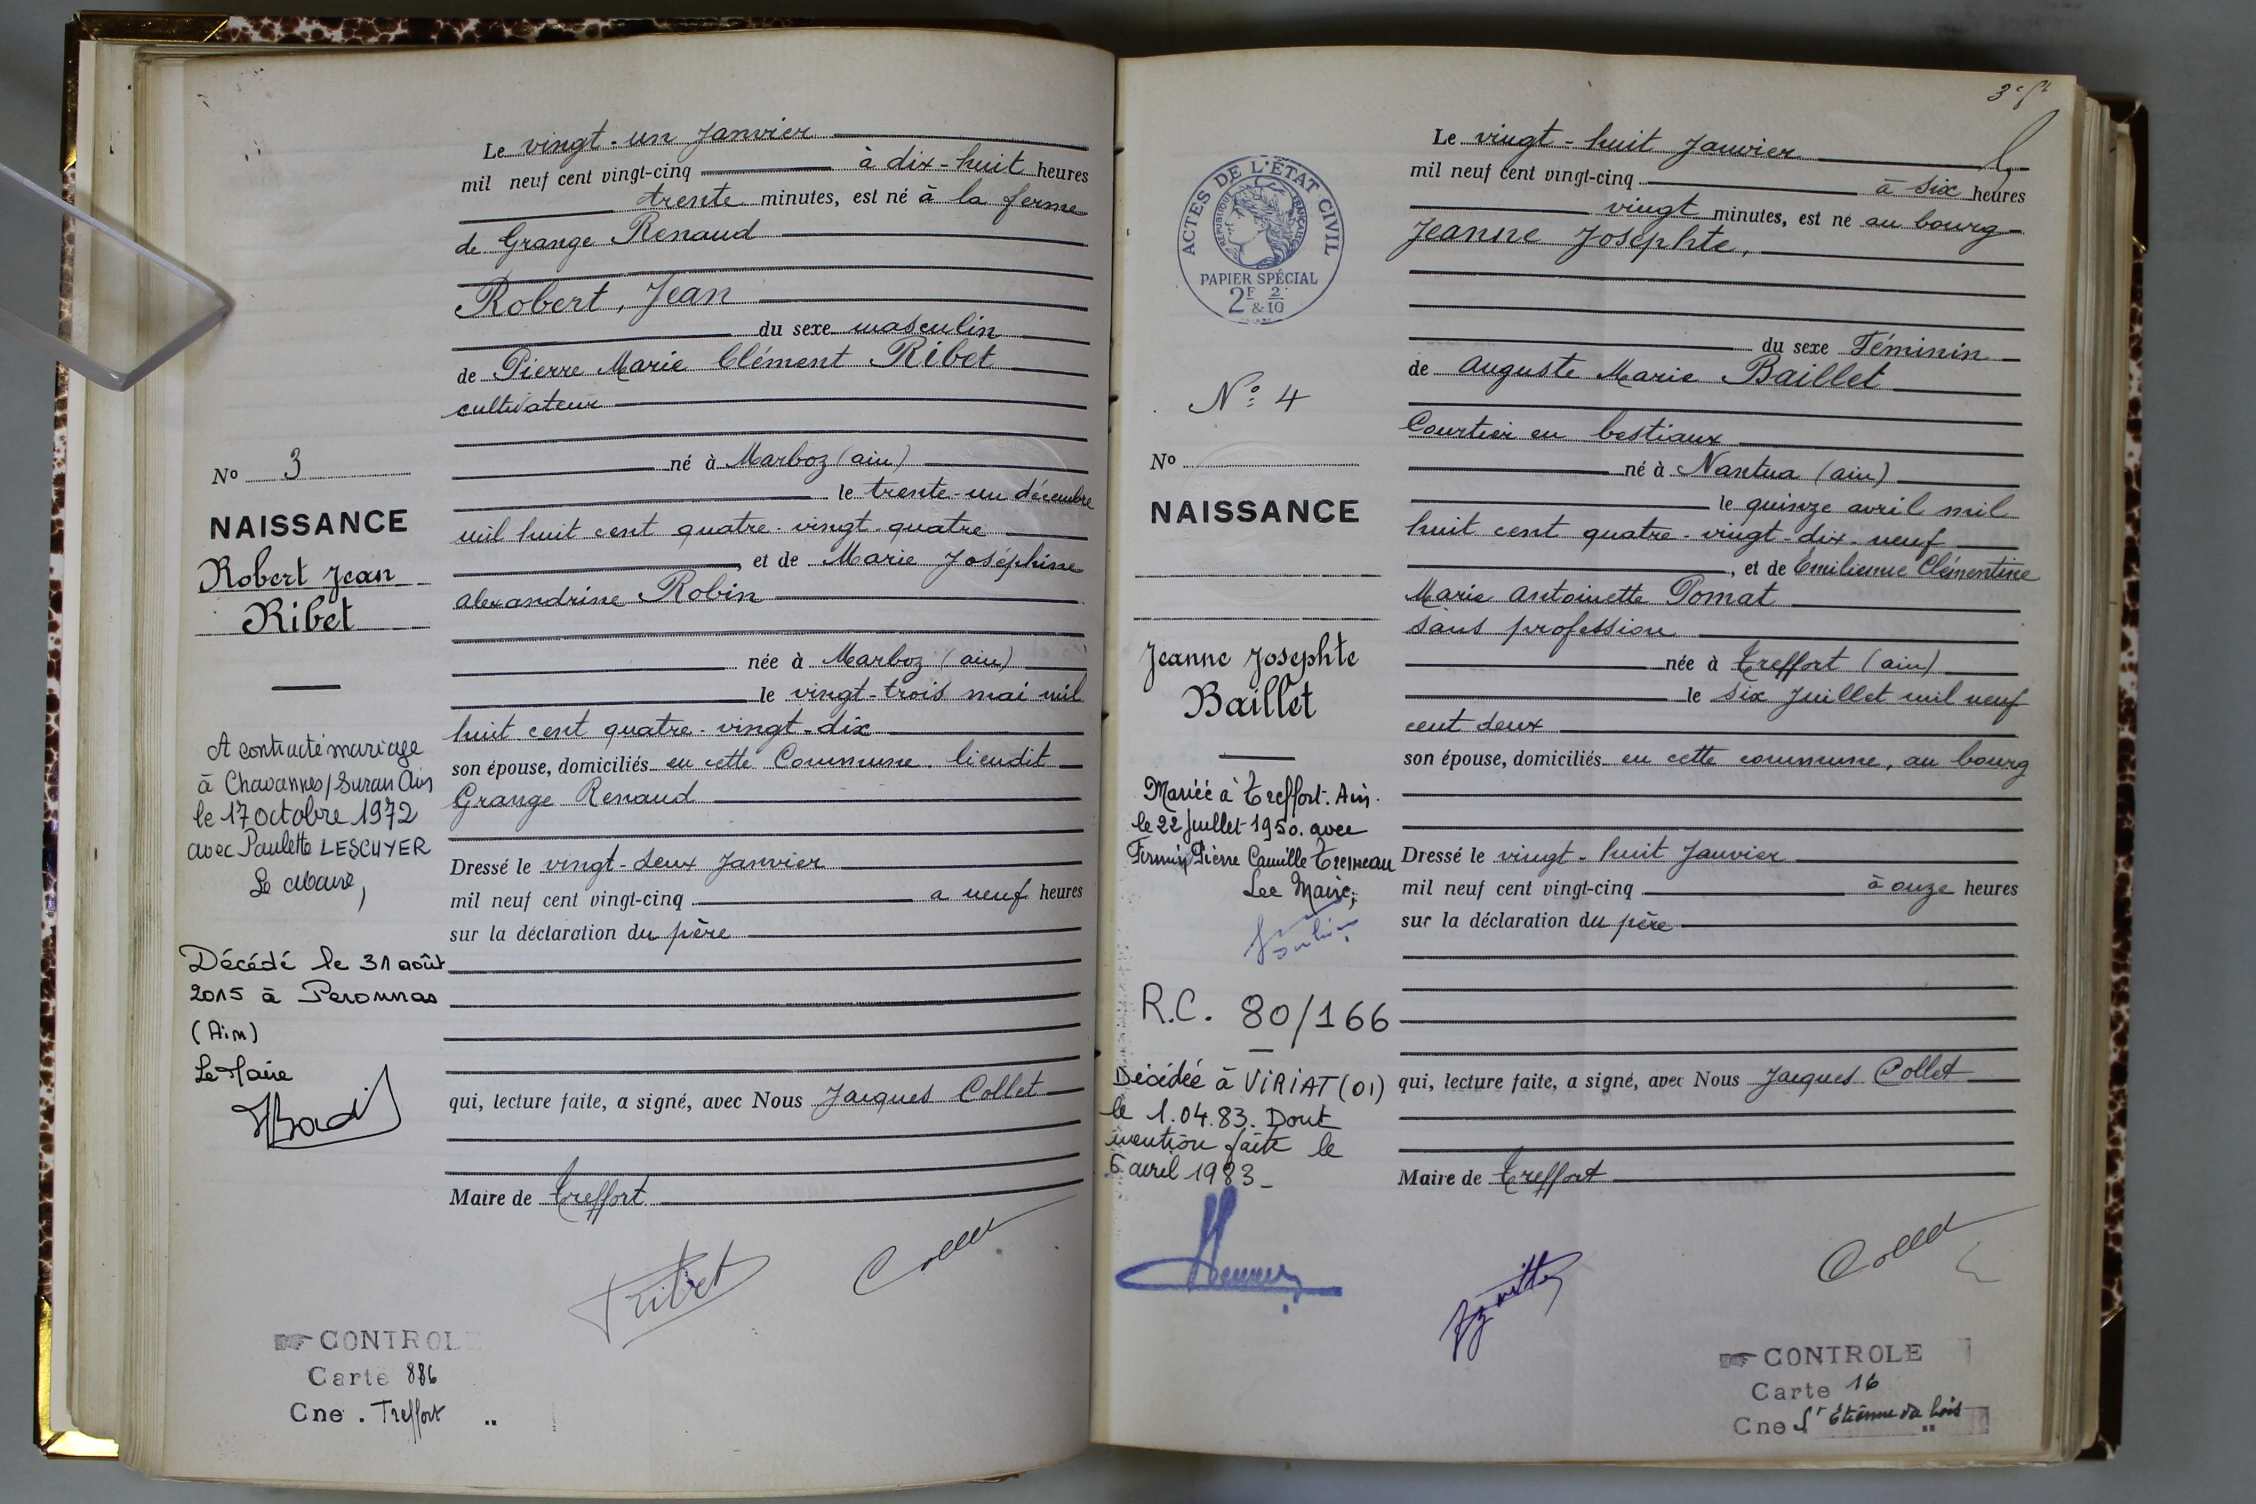 Le vingt-un Janvier
mil neuf cent vingt-cinq à dix-huit heures
trente minutes, est né à la ferme
de Grange Renaud
Robert, Jean
du sexe masculin
de Pierre Marie Clément Ribet
cultivateur
né à Marboz (ain)
le trente-un décembre
mil huit cent quatre-vingt-quatre
, et de Marie Joséphine
alexandrine Robin
née à Marboz (ain)
le vingt-trois mai mil
huit cent quatre-vingt-dix
son épouse, domiciliés en cette Commune. lieudit
Grange Renaud
Dressé le vingt-deux Janvier
mil neuf cent vingt-cinq a neuf heures
sur la déclaration du père
qui, lecture faite, a signé, avec Nous Jacques Collet
Maire de Treffort
Ribet
Collet
No 3
NAISSANCE
Robert Jean
Ribet
A contracté mariage
à Chavannes/Suran Ain
le 17 octobre 1972
avec Paulette LESCUYER
Le Maire,
Décédé le 31 août
2015 à Peronnas
(Ain)
Le Maire
CONTROLE
Carte 886
Cne. Treffort
Le vingt-huit Janvier
mil neuf cent vingt-cinq à six heures
vingt minutes, est né au bourg
Jeanne Josephte,
du sexe Féminin
de auguste Marie Baillet
Courtier en bestiaux
né à Nantua (ain)
le quinze avril mil
huit cent quatre-vingt-dix-neuf
, et de Émilienne Clémentine
Marie antoinette Pomat
sans profession
née à Treffort (ain)
le six Juillet mil neuf
cent deux
son épouse, domiciliés en cette commune, au bourg
Dressé le vingt-huit Janvier
mil neuf cent vingt-cinq à onze heures
sur la déclaration du père
qui, lecture faite, a signé, avec Nous Jacques Collet
Maire de Treffort
Collet
ACTES DE L'ÉTAT CIVIL
RÉPUBLIQUE FRANÇAISE
PAPIER SPÉCIAL
2F & 2/10
No 4
No
NAISSANCE
Jeanne Josephte
Baillet
Mariée à Treffort. Ain.
le 22 Juillet 1950. avec
Firmin Pierre Camille
Le Maire,
R.C. 80/166
Décédée à VIRIAT (01)
le 1.04.83. Dont
mention faite le
6 avril 1983
CONTROLE
Carte 16
Cne St Étienne du bois